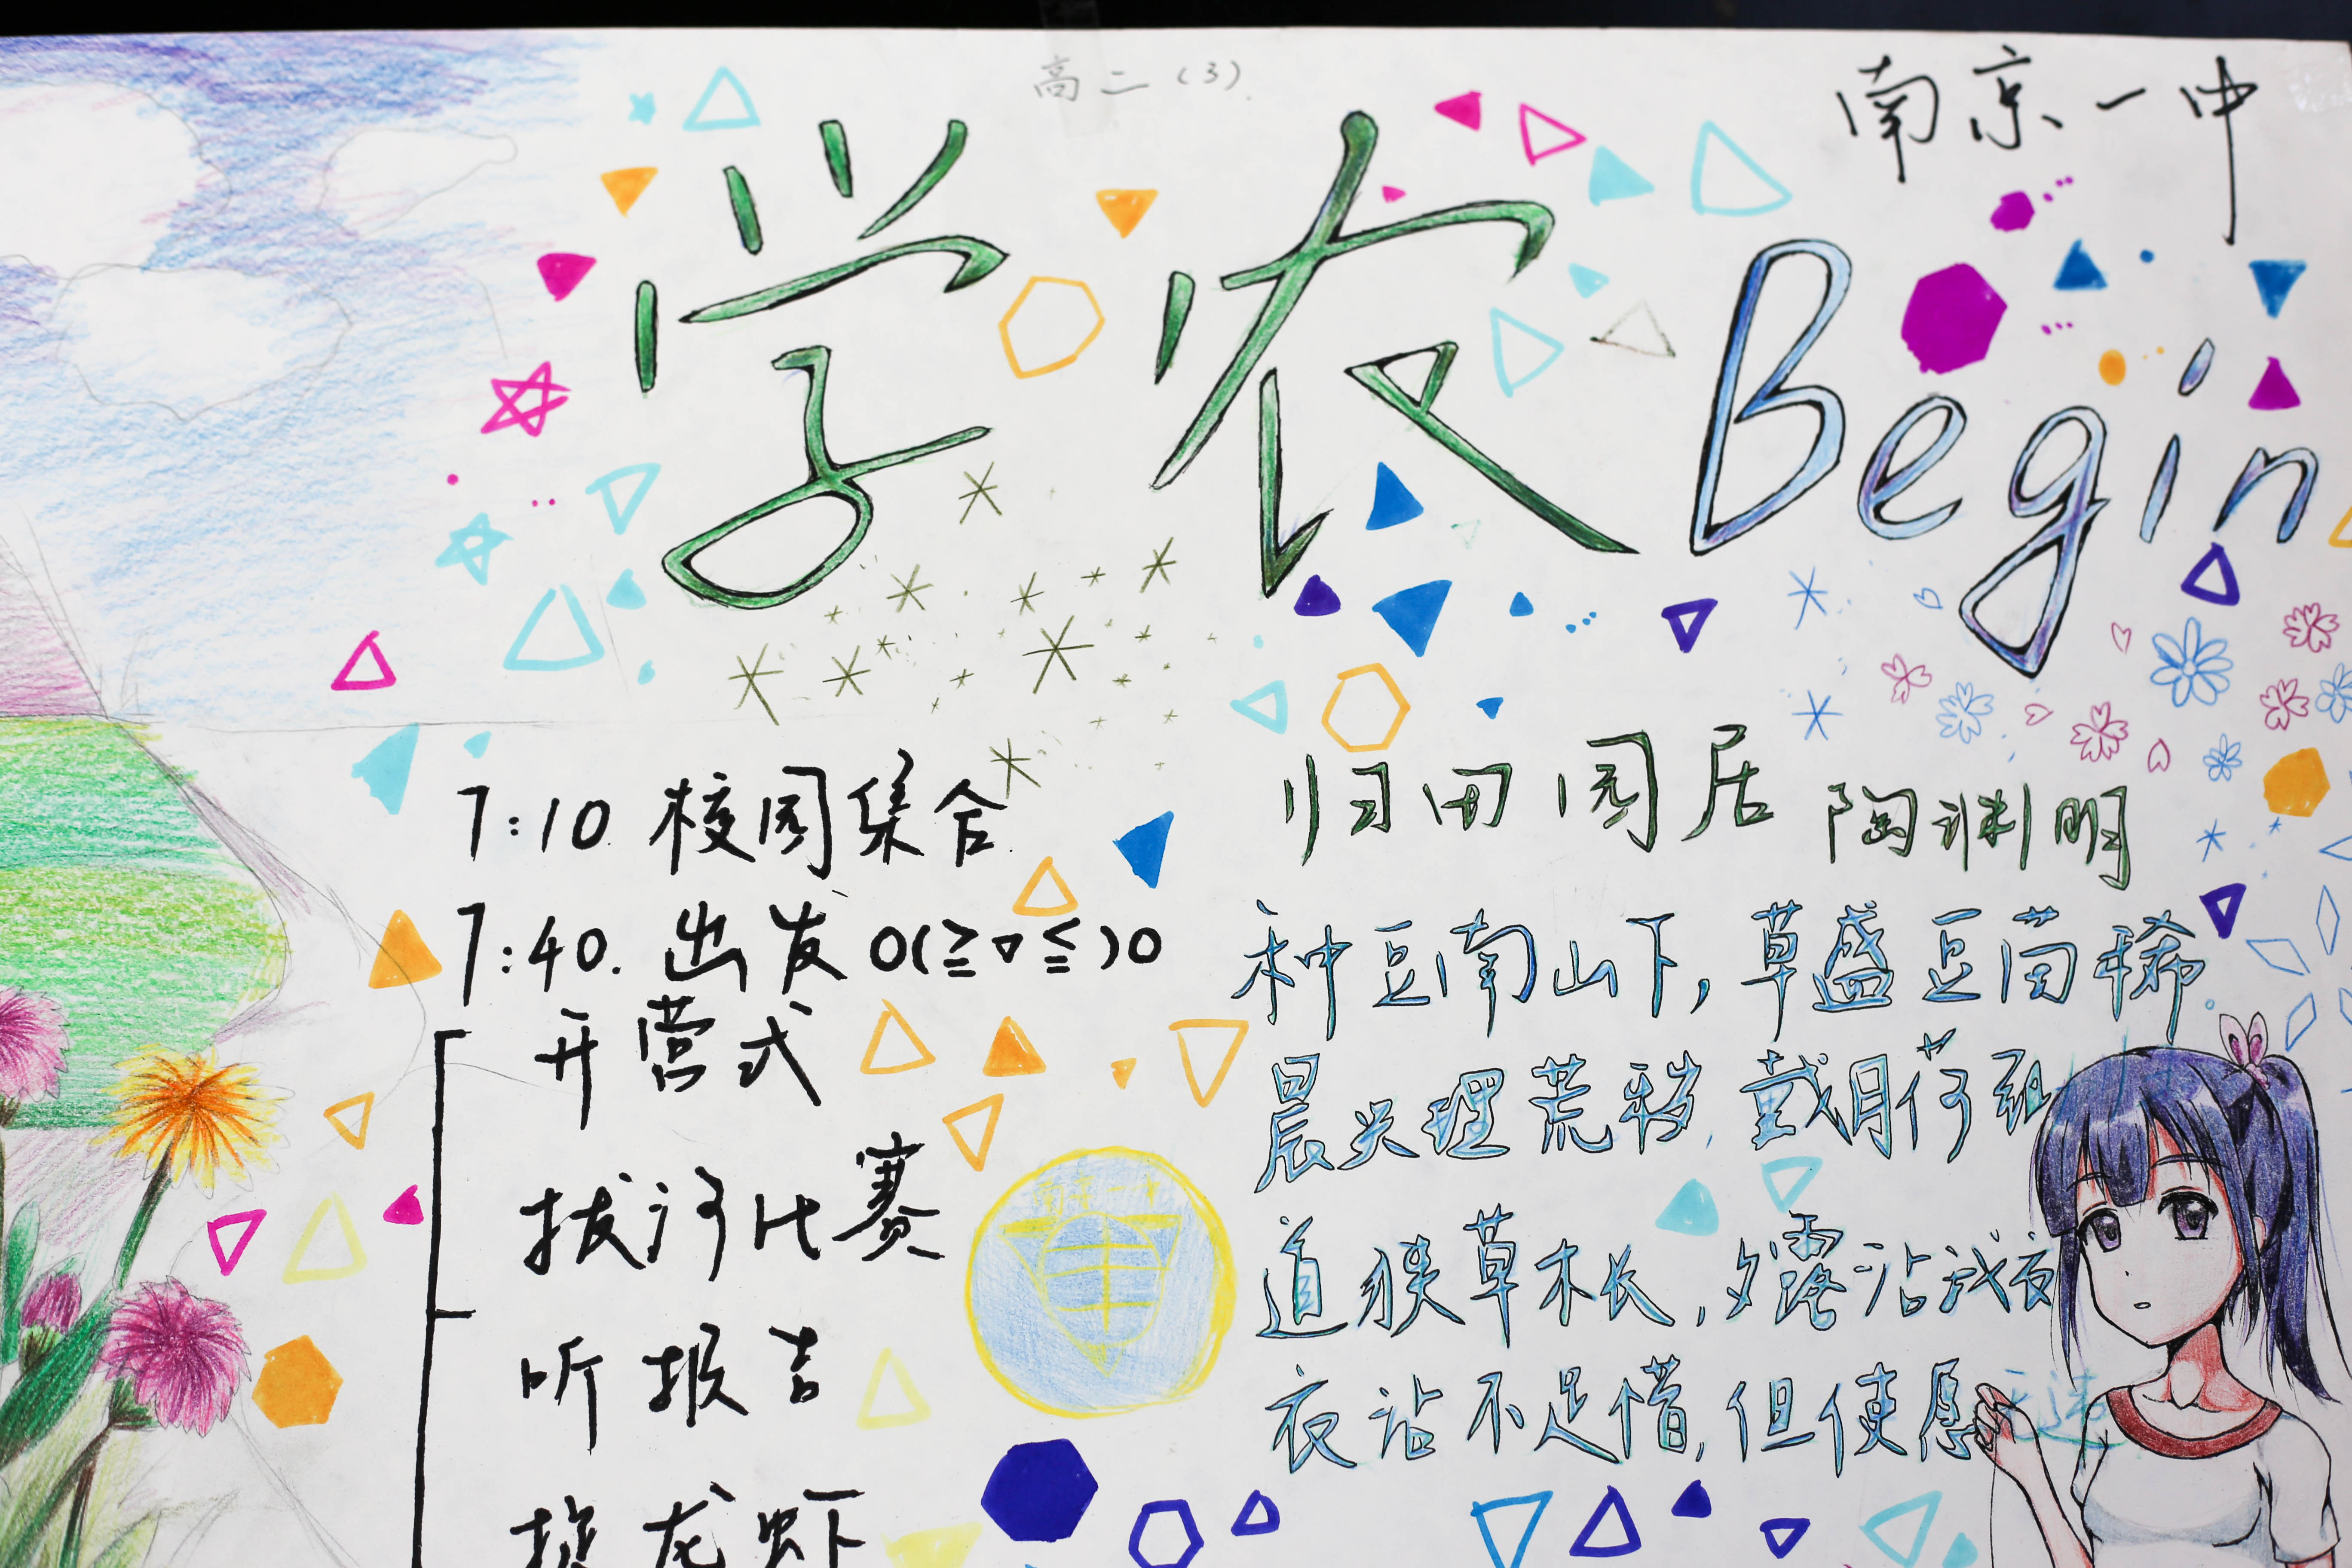 高二(3)
南京一中
学农Begin
7:10.校园集合
7:40.出发 O(≧▽≦)O
开营式
拔河比赛
听报告
龙虾
归田园居 陶渊明
种豆南山下,草盛豆苗稀。
晨兴理荒秽,戴月荷
道狭草木长,夕露沾我衣
衣沾不足惜,但使愿无违